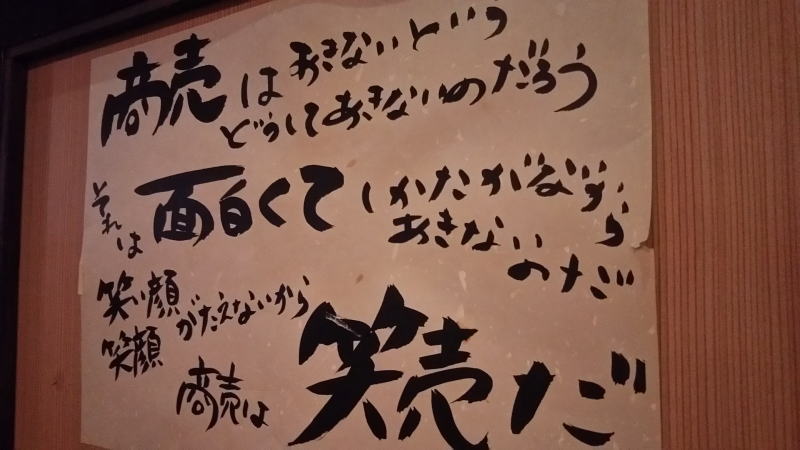 商売はあきないという
どうしてあきないのだろう
それは面白くてしかたがないから
あきないのだ
笑顔
笑顔がたえないから
商売は笑売だ